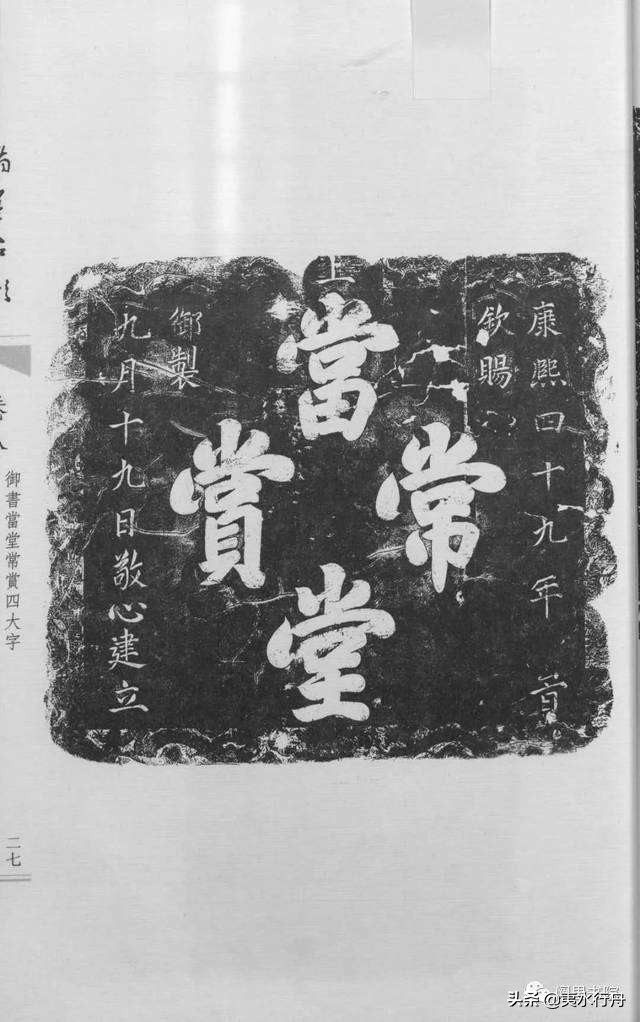 康熙四十九年
欽賜
上
當
常
賞
堂
御製
九月十九日敬心建立
御書當堂常賞四大字
二七
头条 @夷水行舟